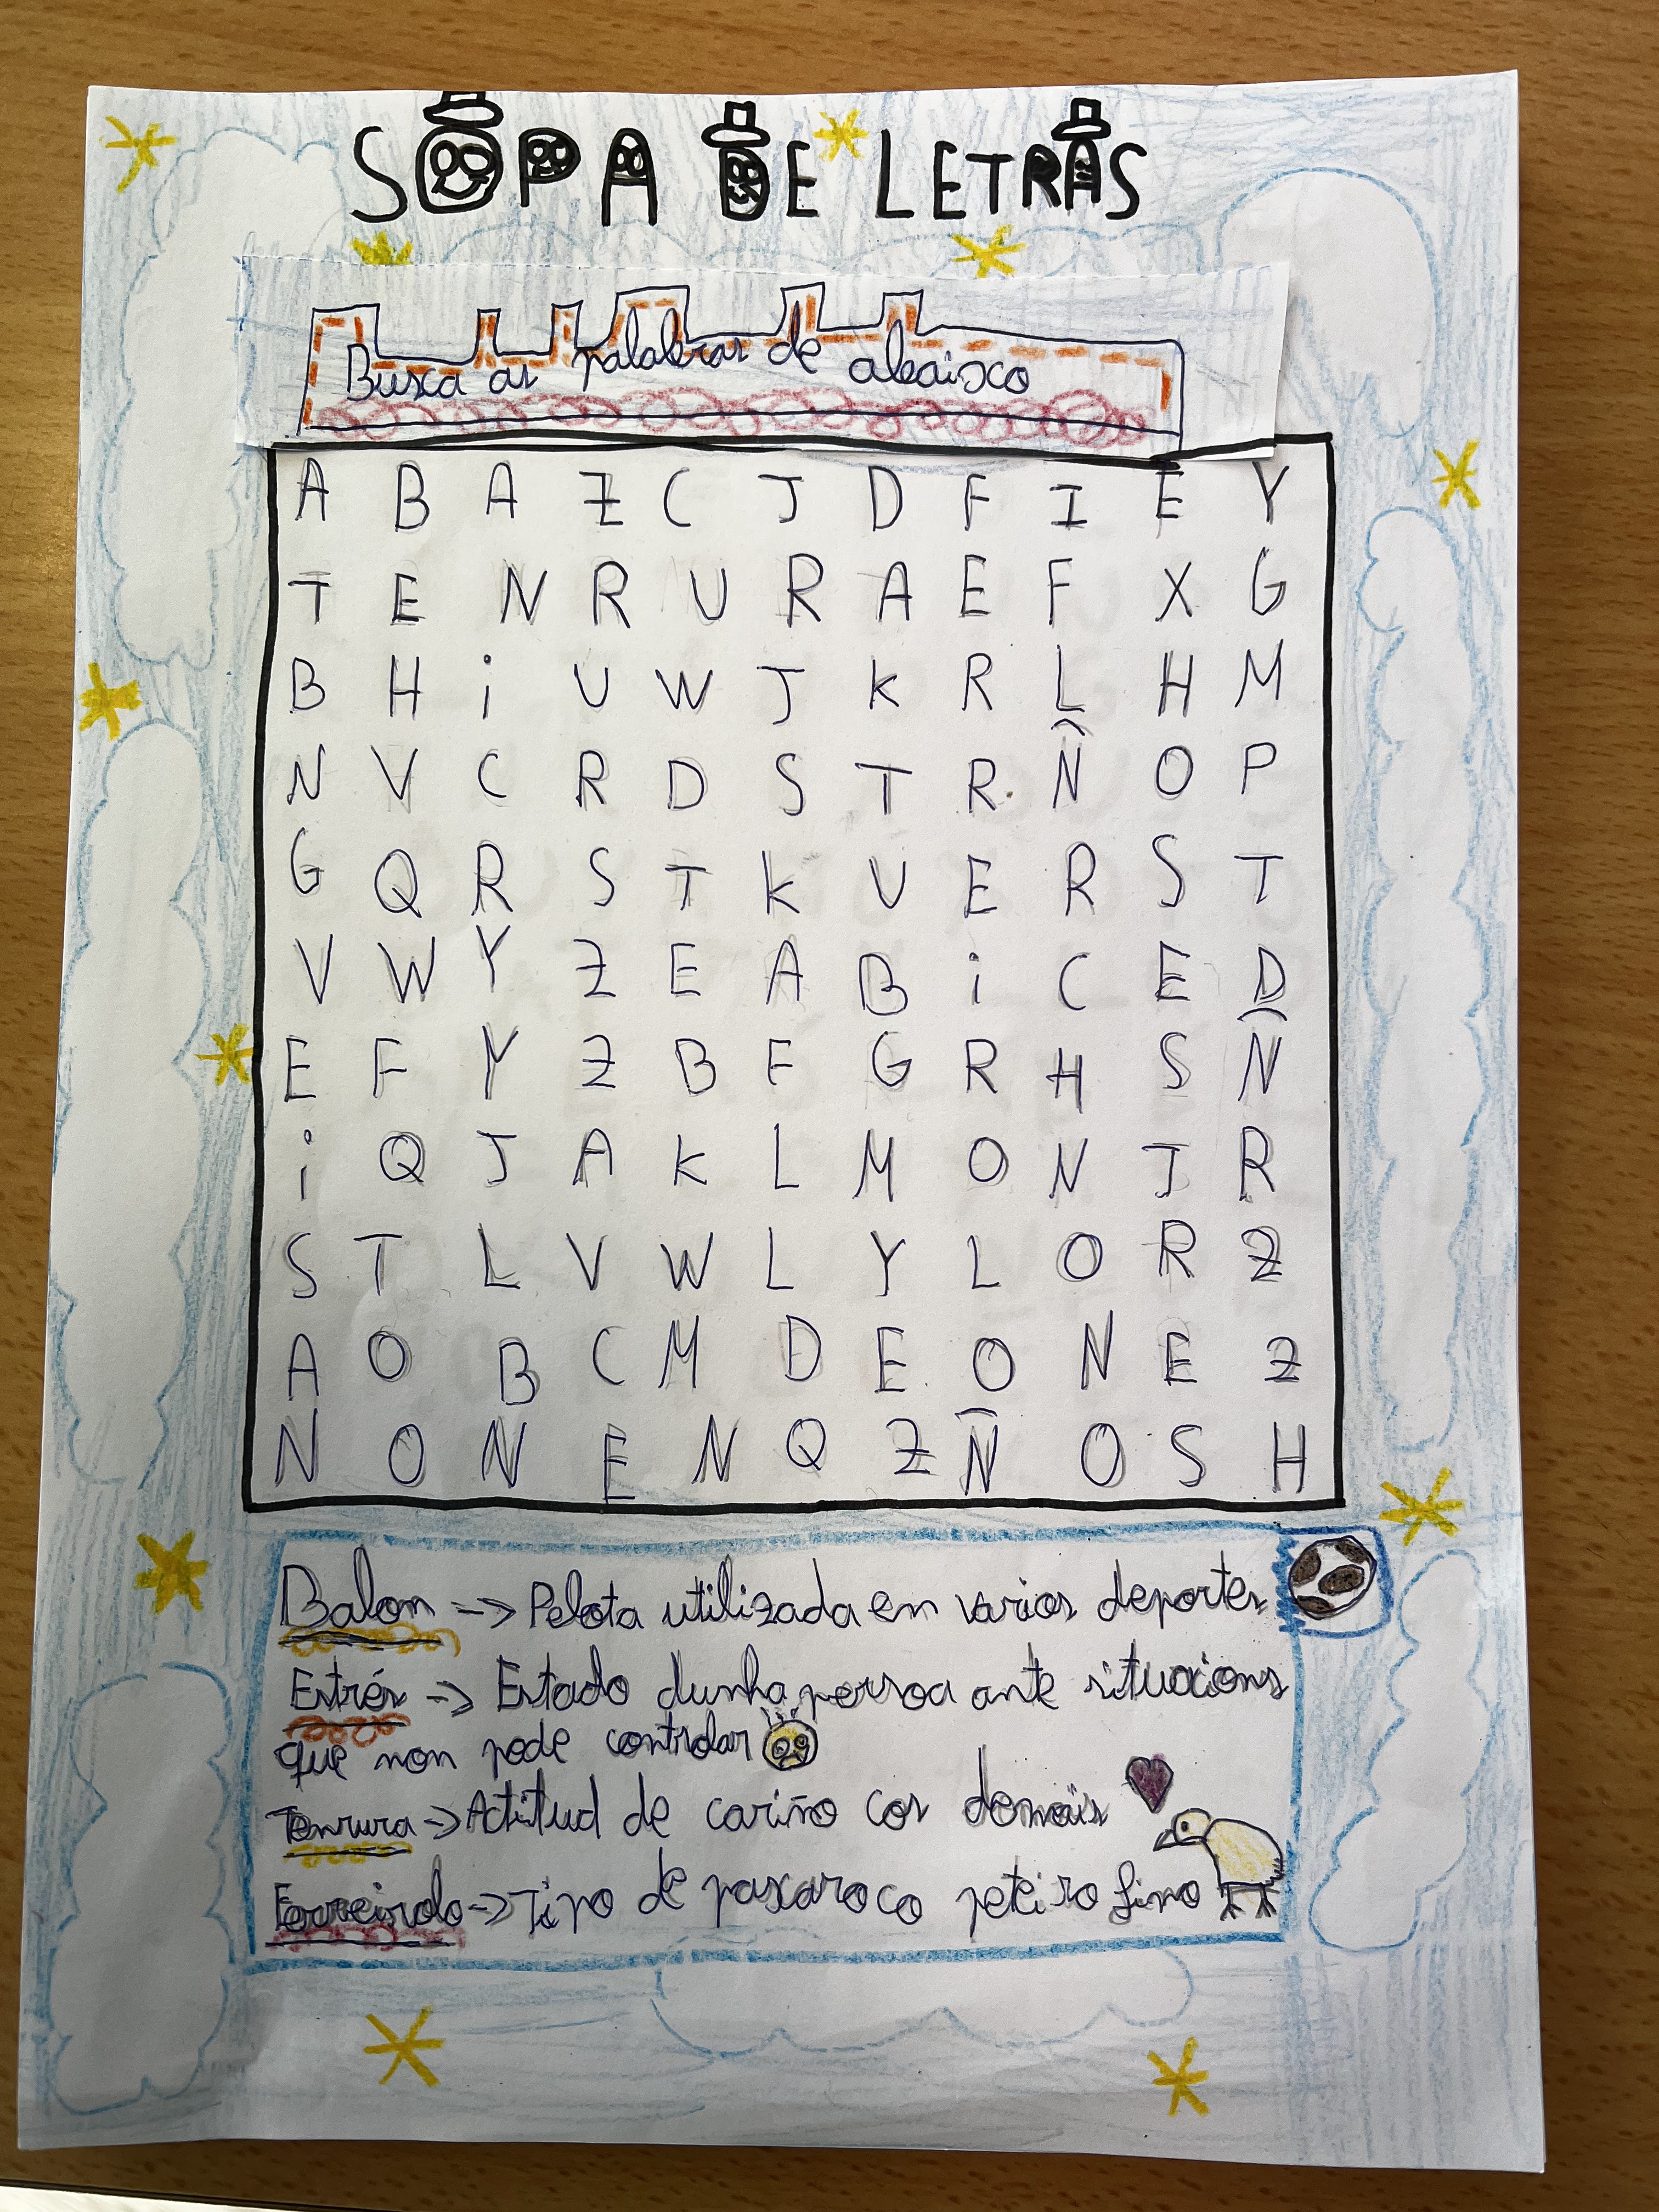 SOPA DE LETRAS
Busca as palabras de abaixo
A B A Z C J D F I E Y
T E N R U R A E F X G
B H i U W J K R L H M
N V C R D S T R Ñ O P
G Q R S T K U E R S T
V W Y Z E A B i C E D
E F Y Z B F G R H S Ñ
i Q J A K L M O N J R
S T L V W L Y L O R Z
A O B C M D E O N E Z
N O N E N Q Z Ñ O S H
Balon -> Pelota utilizada en varios deportes
Estrés -> Estado dunha persoa ante situacions
que non pode controlar
Tenrura -> Actitud de cariño cos demais
Ferreirolo -> Tipo de paxaro co peteiro fino